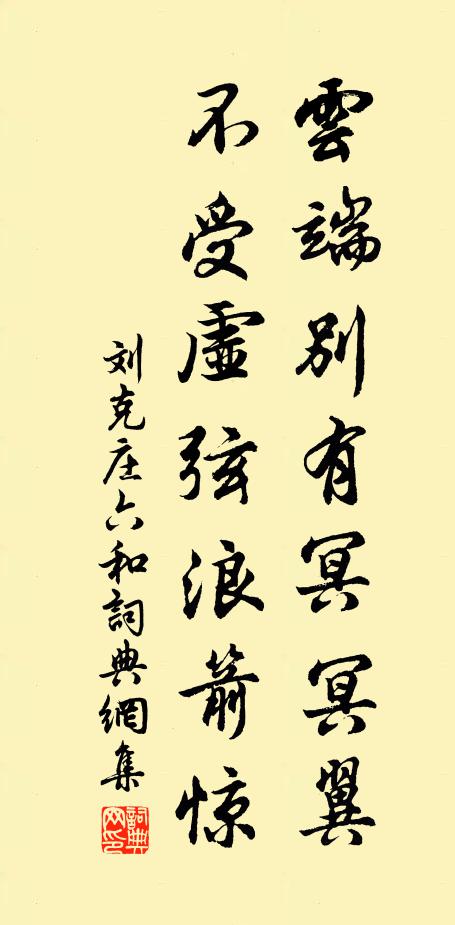 雲端別有冥冥翼
不受虛弦浪箭惊
刘克庄六和詞典網集
詞典網印